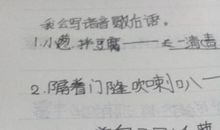 我会写谐音歇后语。
1.小葱拌豆腐——一清
2.隔着门缝吹喇叭——